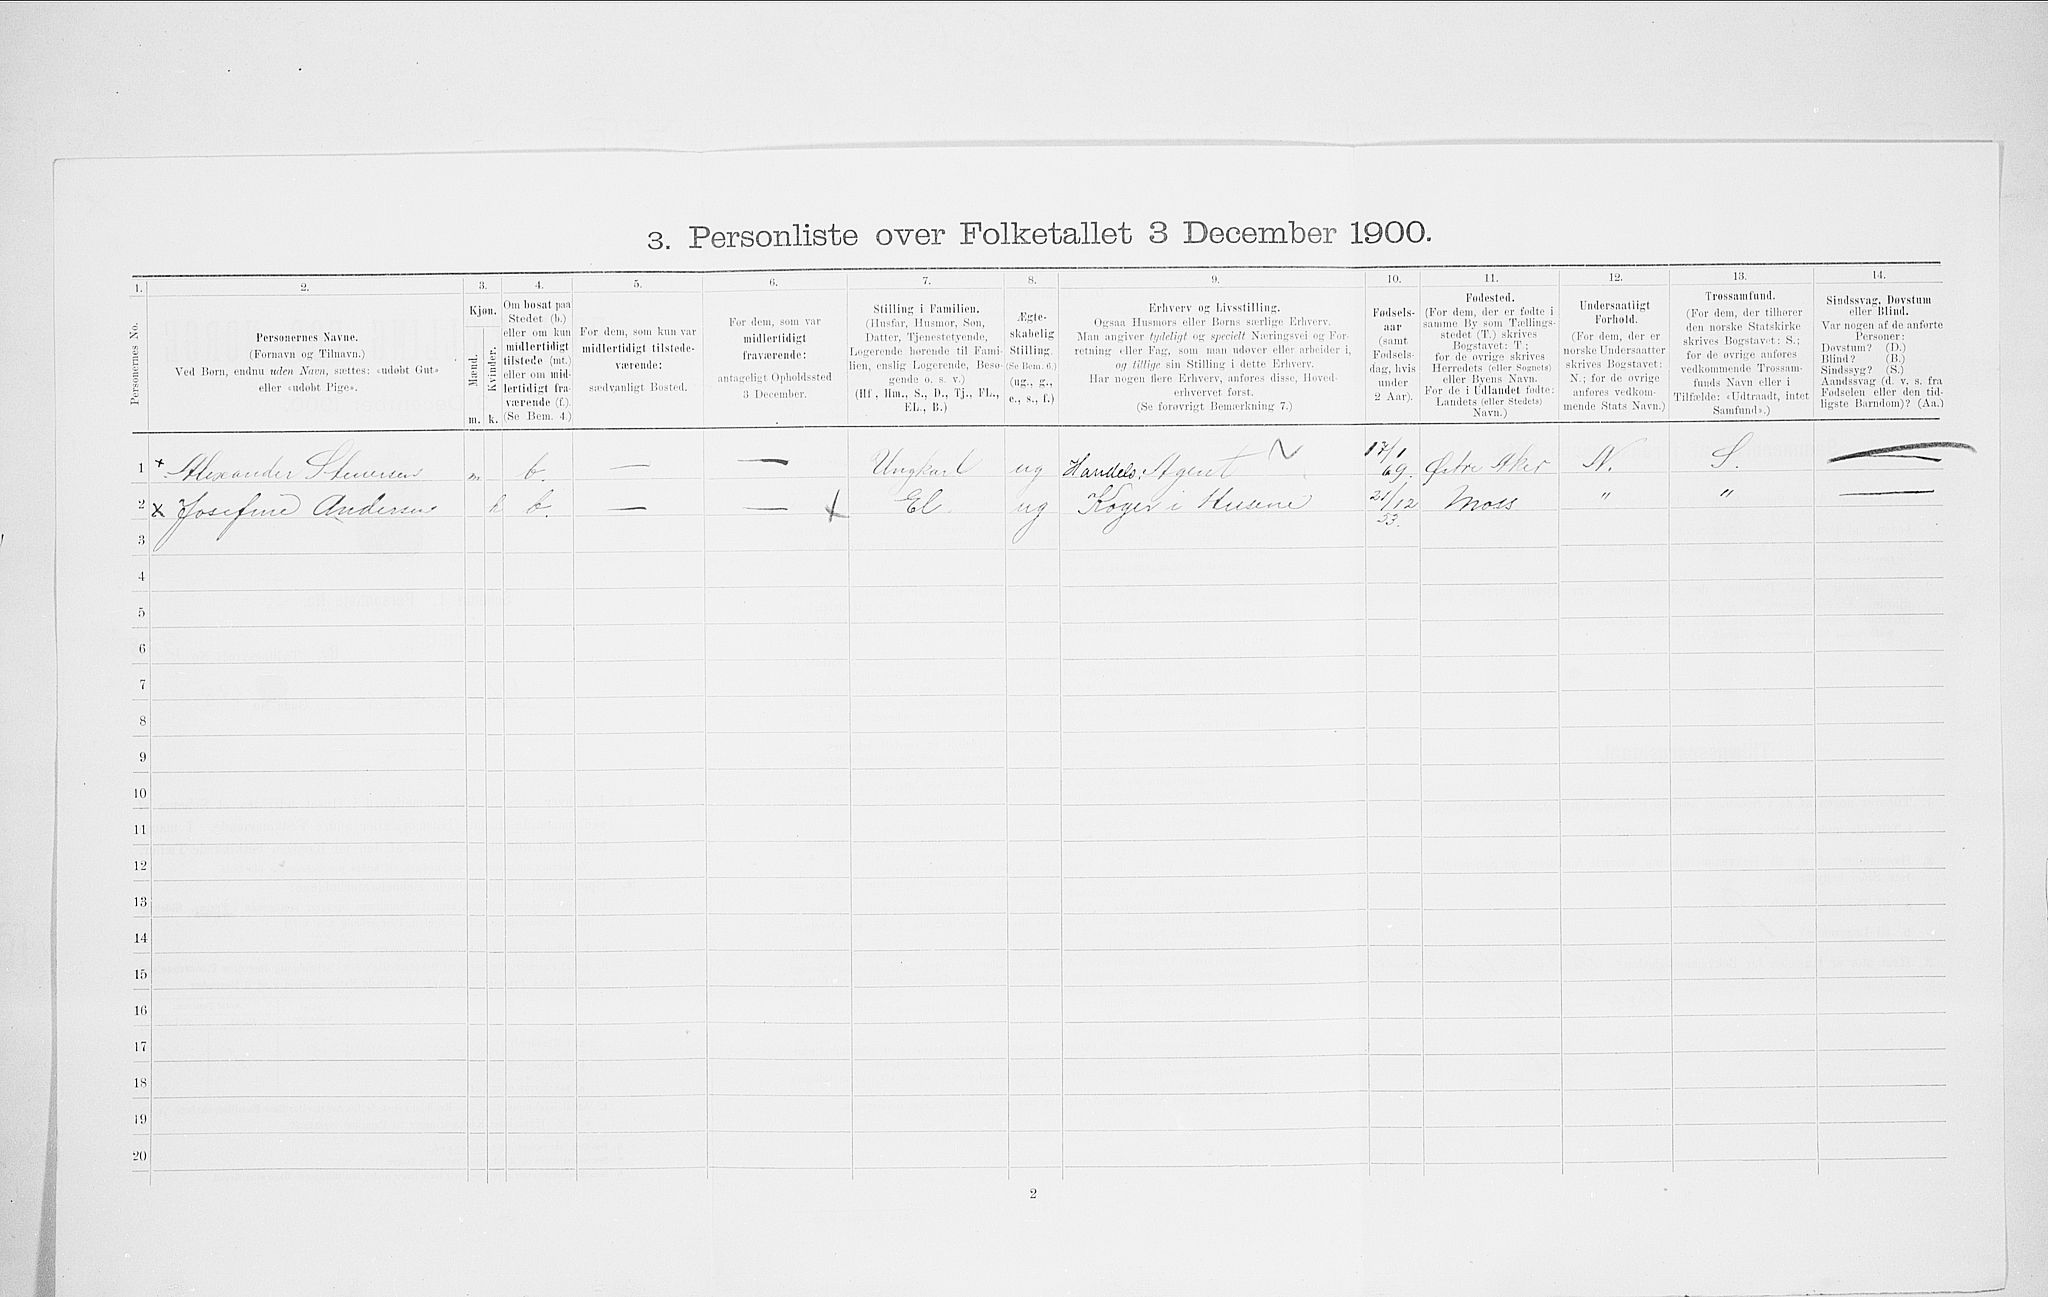 3. Personliste over Folketallet 3 December 1900.
1. 2. 3. 4. 5. 6. 7. 8. 9. 10. 11. 12. 13. 14.
Personernes No.
Personernes Navne.
(Fornavn og Tilnavn.)
Ved Børn, endnu uden Navn, sættes: «udøbt Gut»
eller «udøbt Pige».
Kjøn.
Mænd.
Kvinder.
m. k.
Om bosat paa
Stedet (b.)
eller om kun
midlertidigt
tilstede (mt.)
eller om mid-
lertidigt fra-
værende (f.).
(Se Bem. 4.)
For dem, som kun var
midlertidigt tilstede-
værende:
sædvanligt Bosted.
For dem, som var
midlertidigt
fraværende:
antageligt Opholdssted
3 December.
Stilling i Familien.
(Husfar, Husmor, Søn,
Datter, Tjenestetyende,
Logerende hørende til Fami-
lien, enslig Logerende, Besø-
gende o. s. v.)
(Hf., Hm., S., D., Tj., FL.,
EL., B.)
Ægte-
skabelig
Stilling.
(Se Bem. 6.)
(ug., g.,
e., s., f.)
Erhverv og Livsstilling.
Ogsaa Husmors eller Børns særlige Erhverv.
Man angiver tydeligt og specielt Næringsvei og For-
retning eller Fag, som man udøver eller arbeider i,
og tillige sin Stilling i dette Erhverv.
Har nogen flere Erhverv, anføres disse, Hoved-
erhvervet først.
(Se forøvrigt Bemærkning 7.)
Fødsels-
aar
(samt
Fødsels-
dag, hvis
under
2 Aar).
Fødested.
(For dem, der er fødte i
samme By som Tællings-
stedet (T.) skrives
Bogstavet: T.;
for de øvrige skrives
Herredets (eller Sognets)
eller Byens Navn.
For de i Udlandet fødte:
Landets (eller Stedets)
Navn.)
Undersaatligt
Forhold.
(For dem, der er
norske Undersaatter
skrives Bogstavet:
N.; for de øvrige
anføres vedkom-
mende Stats Navn.)
Trossamfund.
(For dem, der tilhører
den norske Statskirke
skrives Bogstavet: S.;
for de øvrige anføres
vedkommende Trossam-
funds Navn eller i
Tilfælde: «Udtraadt, intet
Samfund».)
Sindssvag, Døvstum
eller Blind.
Var nogen af de anførte
Personer:
Døvstum? (D.)
Blind? (B.)
Sindssyg? (S.)
Aandssvag (d. v. s. fra
Fødselen eller den tid-
ligste Barndom)? (Aa.)
1 Alexander Stenersen m b. — — Ungkarl ug Handels. Agent 17/1 69. Østre Aker N. S. —
2 Josefine Andersen k b. — — El ug Koger i Husene 21/12 53. Moss " " —
3
4
5
6
7
8
9
10
11
12
13
14
15
16
17
18
19
20
2